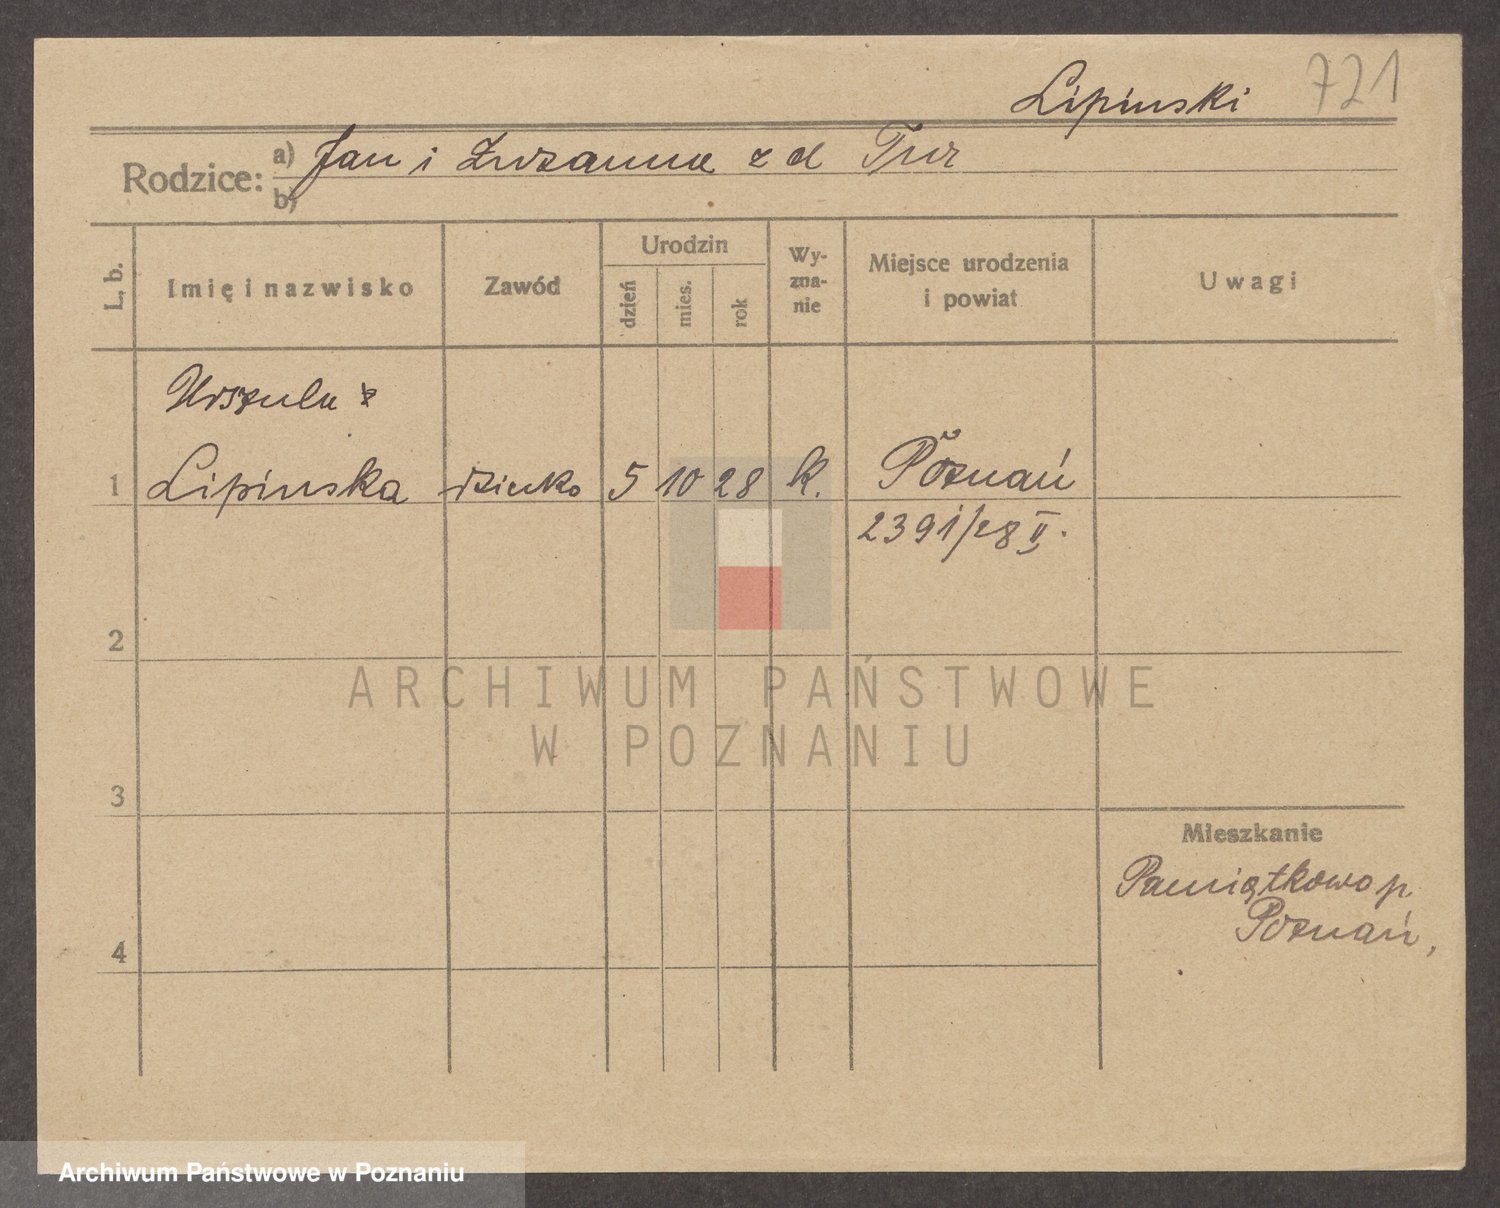 Lipinski 721
Rodzice: a) Jan i Zuzanna z d Tur
b)
L. b.
Imię i nazwisko
Zawód
Urodzin
dzień
mies.
rok
Wy-
zna-
nie
Miejsce urodzenia
i powiat
Uwagi
Urszula
1 Lipinska dziecko 5 10 28 k. Poznań
2391/28 II.
2
ARCHIWUM PAŃSTWOWE
W POZNANIU
3
Mieszkanie
Pamiątkowo p.
Poznań,
4
Archiwum Państwowe w Poznaniu